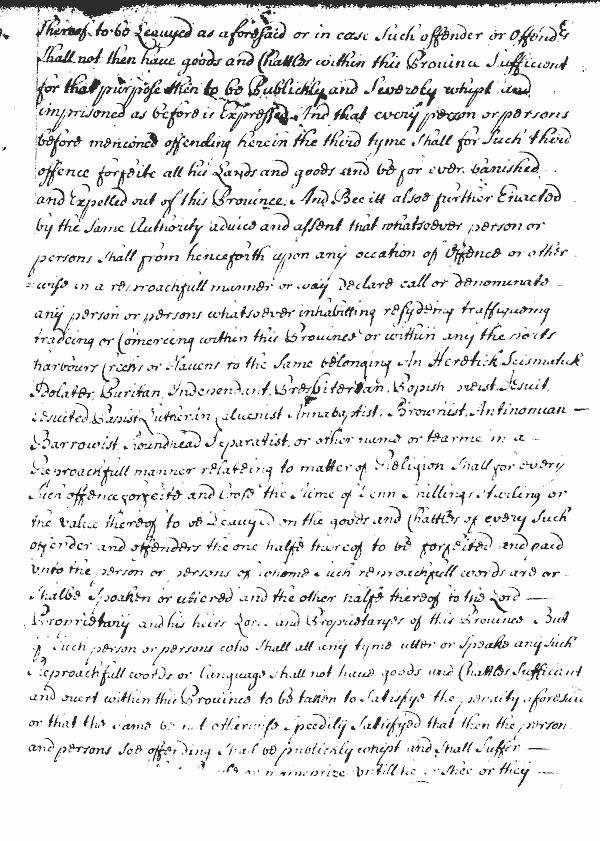 thereof to be Leavyed as aforesaid or in case Such offender or Offenders
Shall not then have goods and Chattles within this Province Sufficient
for that purpose then to be Publickly and Severely whipt and
imprisoned as before is Expressed And that every person or persons
before menconed offending herein the third tyme Shall for Such third
offence forfeite all his Lands and goods and be for ever banished
and Expelled out of this Province. And Bee itt alsoe further Enacted
by the Same Authority advice and assent that whatsoever person or
persons Shall from henceforth upon any occation of Offence or other
wise in a reproachfull manner or way Declare call or denominate
any person or persons whatsoever inhabiting resydeing traffiqueing
tradeing or Comercing within this Province or within any the ports
harbours Creeks or Havens to the Same belonging An Heretick Scismatick
Idolater, Puritan, Independant, Prespiterian, Popish preist Jesuit,
Jesuited Papist, Lutheran Calvenist Annabaptist, Brownist, Antinomian
Barrowist, Roundhead Separatist, or other name or tearme in a
Reproachfull manner relateing to matter of Religion Shall for every
Such offence forfeite and loose the Sume of Tenn Shillings Starling or
the value thereof to be Leavyed on the goods and Chattles of every Such
offender and offenders the one halfe thereof to be forfeited and paid
unto the person or persons of whome Such reproachfull words are or
Shalbe Spoaken or uttered and the other halfe thereof to the Lord
Proprietary and his heirs Lords and Proprietaryes of this Province But
if Such person or persons who Shall att any tyme utter or Speake any Such
Reproachfull words or language Shall not have goods and Chattles Sufficient
and overt within this Province to be taken to Satisfye the penalty aforesaid
or that the Same be not otherwise Speedily Satisfyed that then the person
and persons soe offending Shall be publickly whipt and Shall Suffer
untill he Shee or they